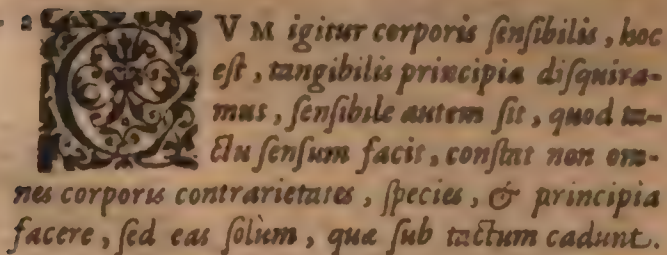 CVM igitur corporis ſenſibilis, hoc
eſt, tangibilis principia diſquira-
mus, ſenſibile autem ſit, quod ta-
ctu ſenſum facit, conſtat non om-
nes corporis contrarietates, ſpecies, & principia
facere, ſed eas ſolùm, quæ ſub tactum cadunt.